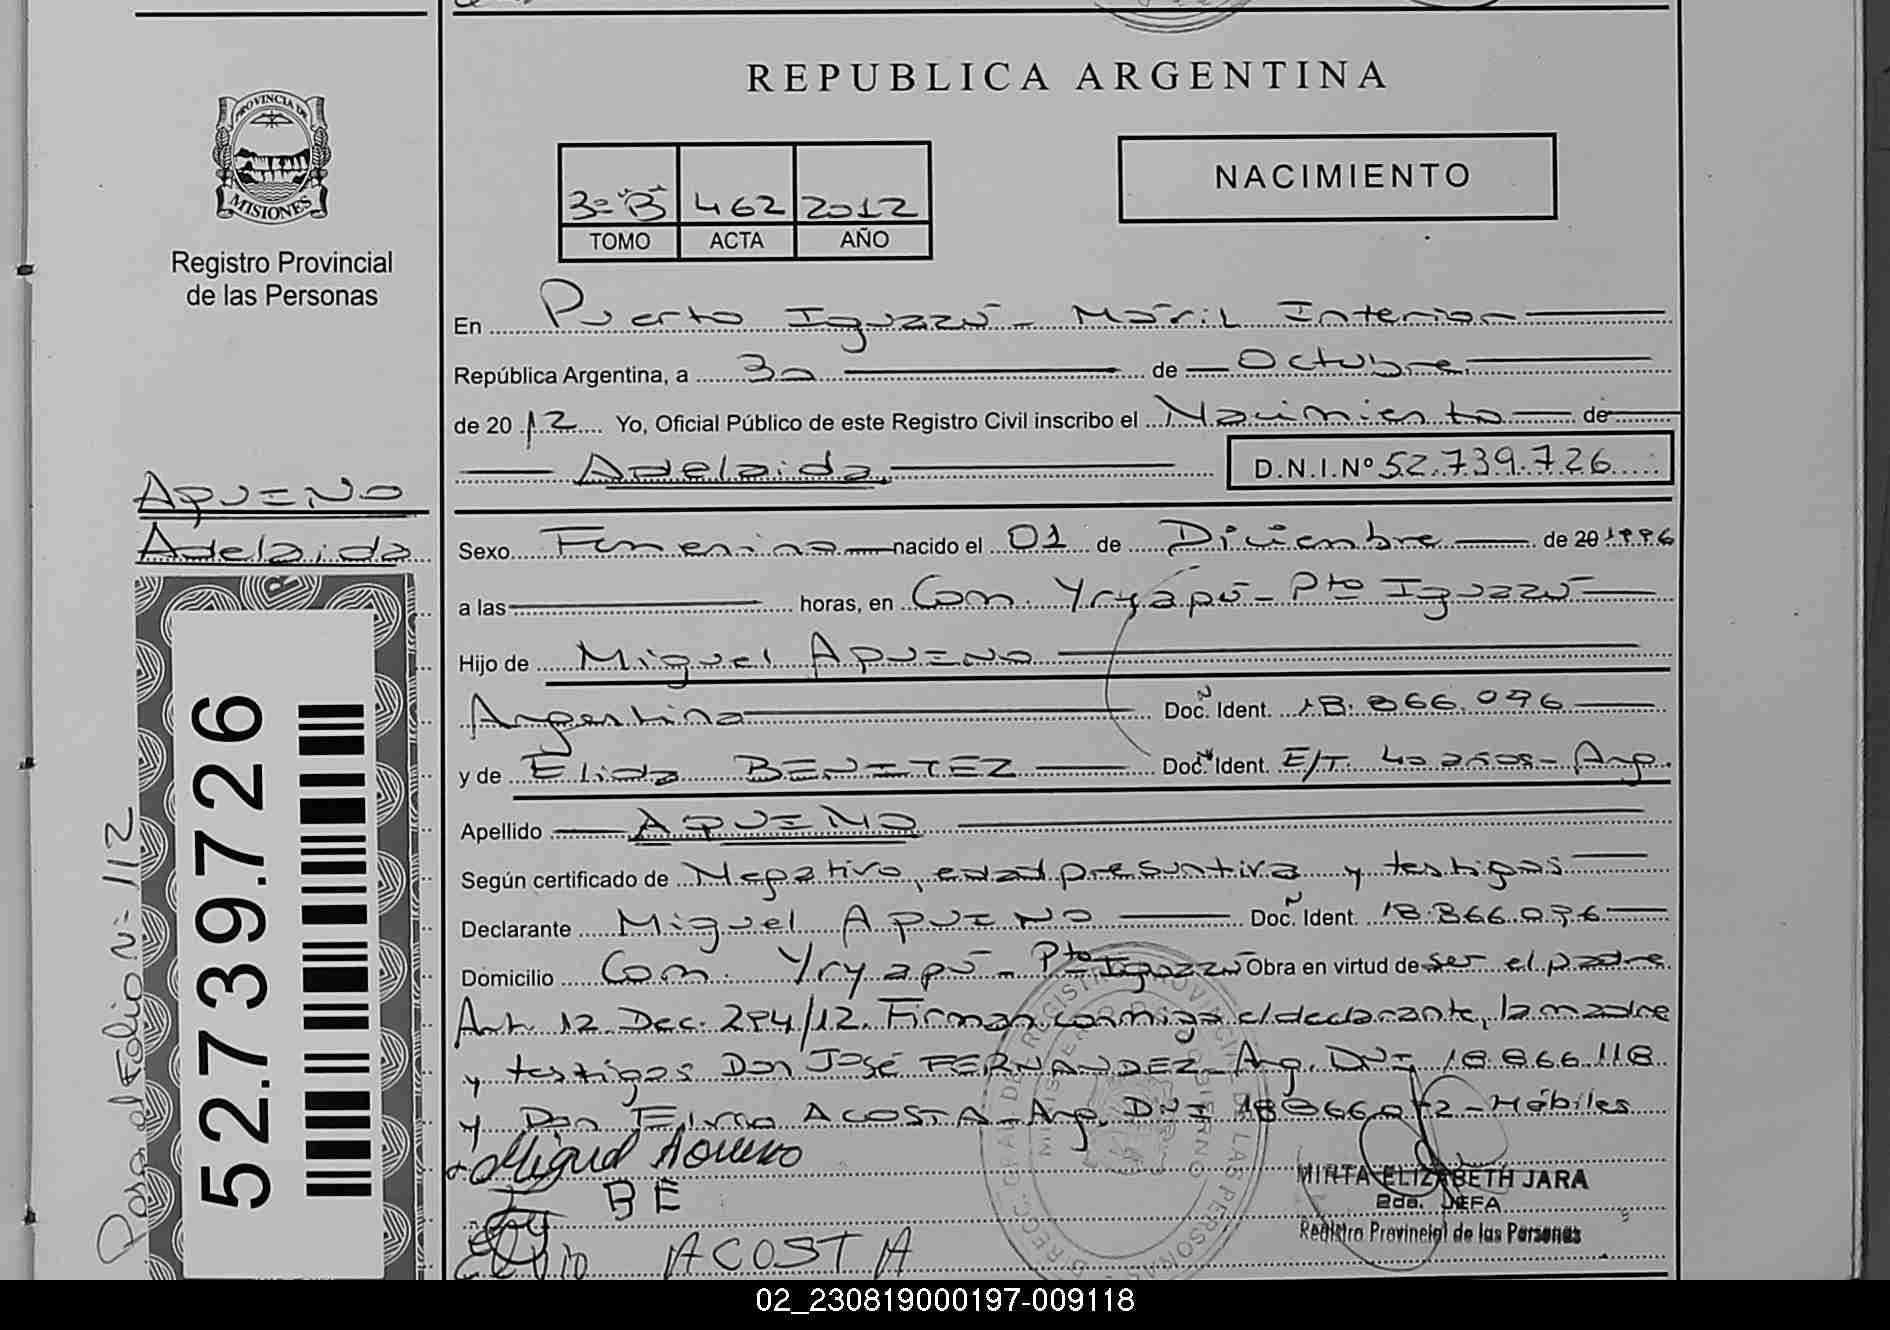 REPUBLICA ARGENTINA
PROVINCIA DE
MISIONES
Registro Provincial
de las Personas
3º "B" 462 2012
TOMO ACTA AÑO
NACIMIENTO
En Puerto Iguazú - Móvil Interior
República Argentina, a 30 de Octubre
de 2012 Yo, Oficial Público de este Registro Civil inscribo el Nacimiento de
Adelaida D.N.I.Nº 52.739.726
AQUINO
Adelaida
Sexo Femenino nacido el 01 de Diciembre de 20 1996
a las horas, en Com. Yryapú - Pto Iguazú
Hijo de Miguel AQUINO
Argentina Doc. Ident. 18.866.096
y de Elida BENITEZ Doc. Ident. E/T 40 años - Arg.
Apellido AQUINO
Según certificado de Negativo, edad presuntiva y testigos
Declarante Miguel AQUINO Doc. Ident. 18.866.096
Domicilio Com. Yryapú - Pto Iguazú Obra en virtud de ser el padre
Art. 12 Dec. 294/12. Firman conmigo el declarante, la madre
y testigos Don José FERNANDEZ - Arg. DNI 18.866.118
y Don Elvio ACOSTA - Arg. DNI 18866072 - Hábiles
Miguel Aquino
BE
Elvio ACOSTA
MIRTA ELIZABETH JARA
2da. JEFA
Registro Provincial de las Personas
52.739.726
Pasa al Folio Nº 112
02_230819000197-009118